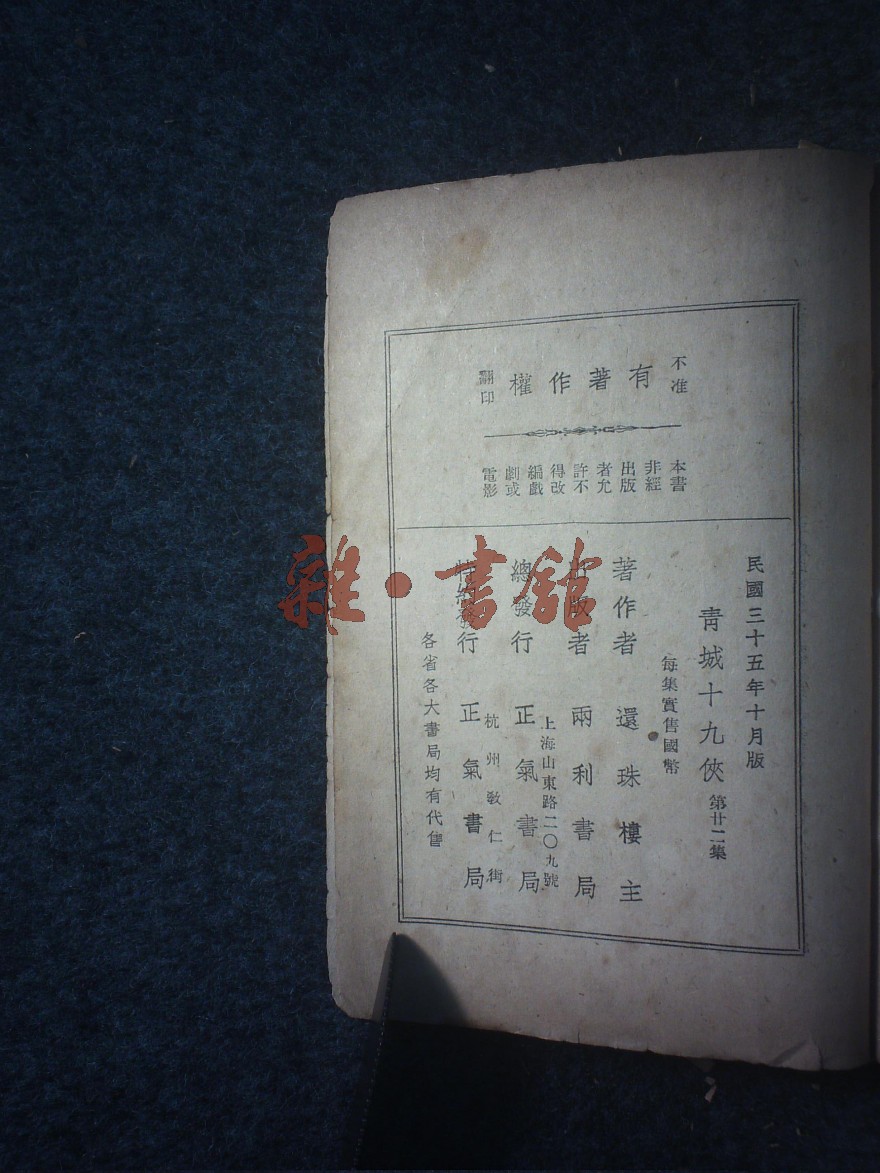 有著作權
不准
翻印
本書
非經
出版
者允
許不
得改
編戲
劇或
電影
民國三十五年十月版
青城十九俠 第廿二集
每集實售國幣
著作者 還珠樓主
出版者 兩利書局
總發行 正氣書局
上海山東路二〇九號
特約發行 正氣書局
杭州敎仁街
各省各大書局均有代售
雜·書館